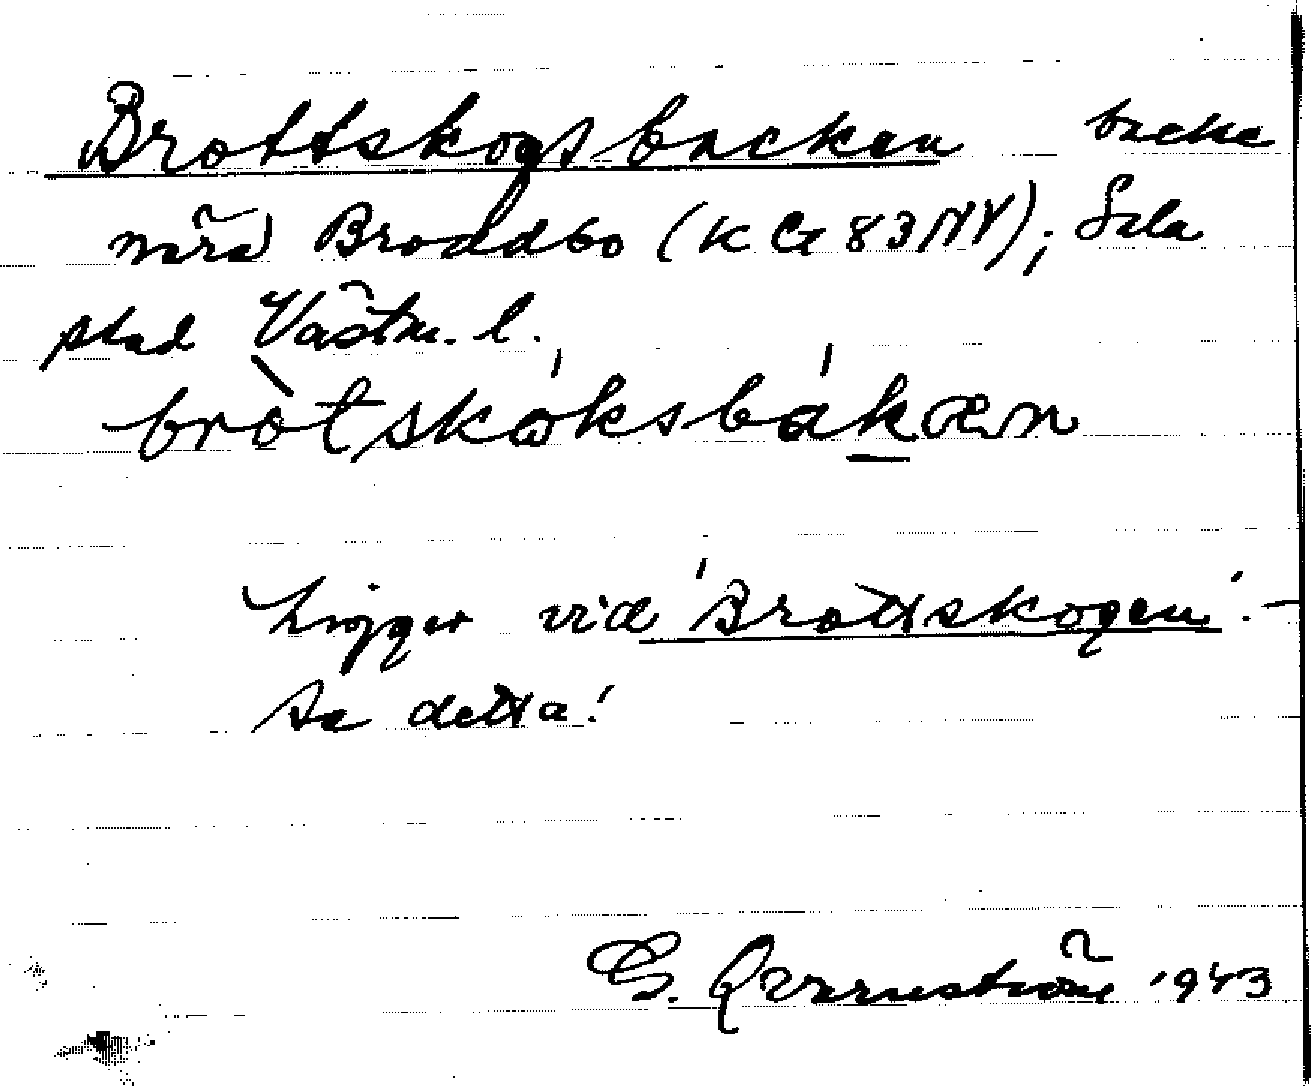 Brottskogsbacken backe
nära Broddbo (K G 83 NV); Sala
stad Västm. l.
bròtskóksbákæn
Ligger vid Brottskogen. –
Se detta!
G. Qvarnström 1943